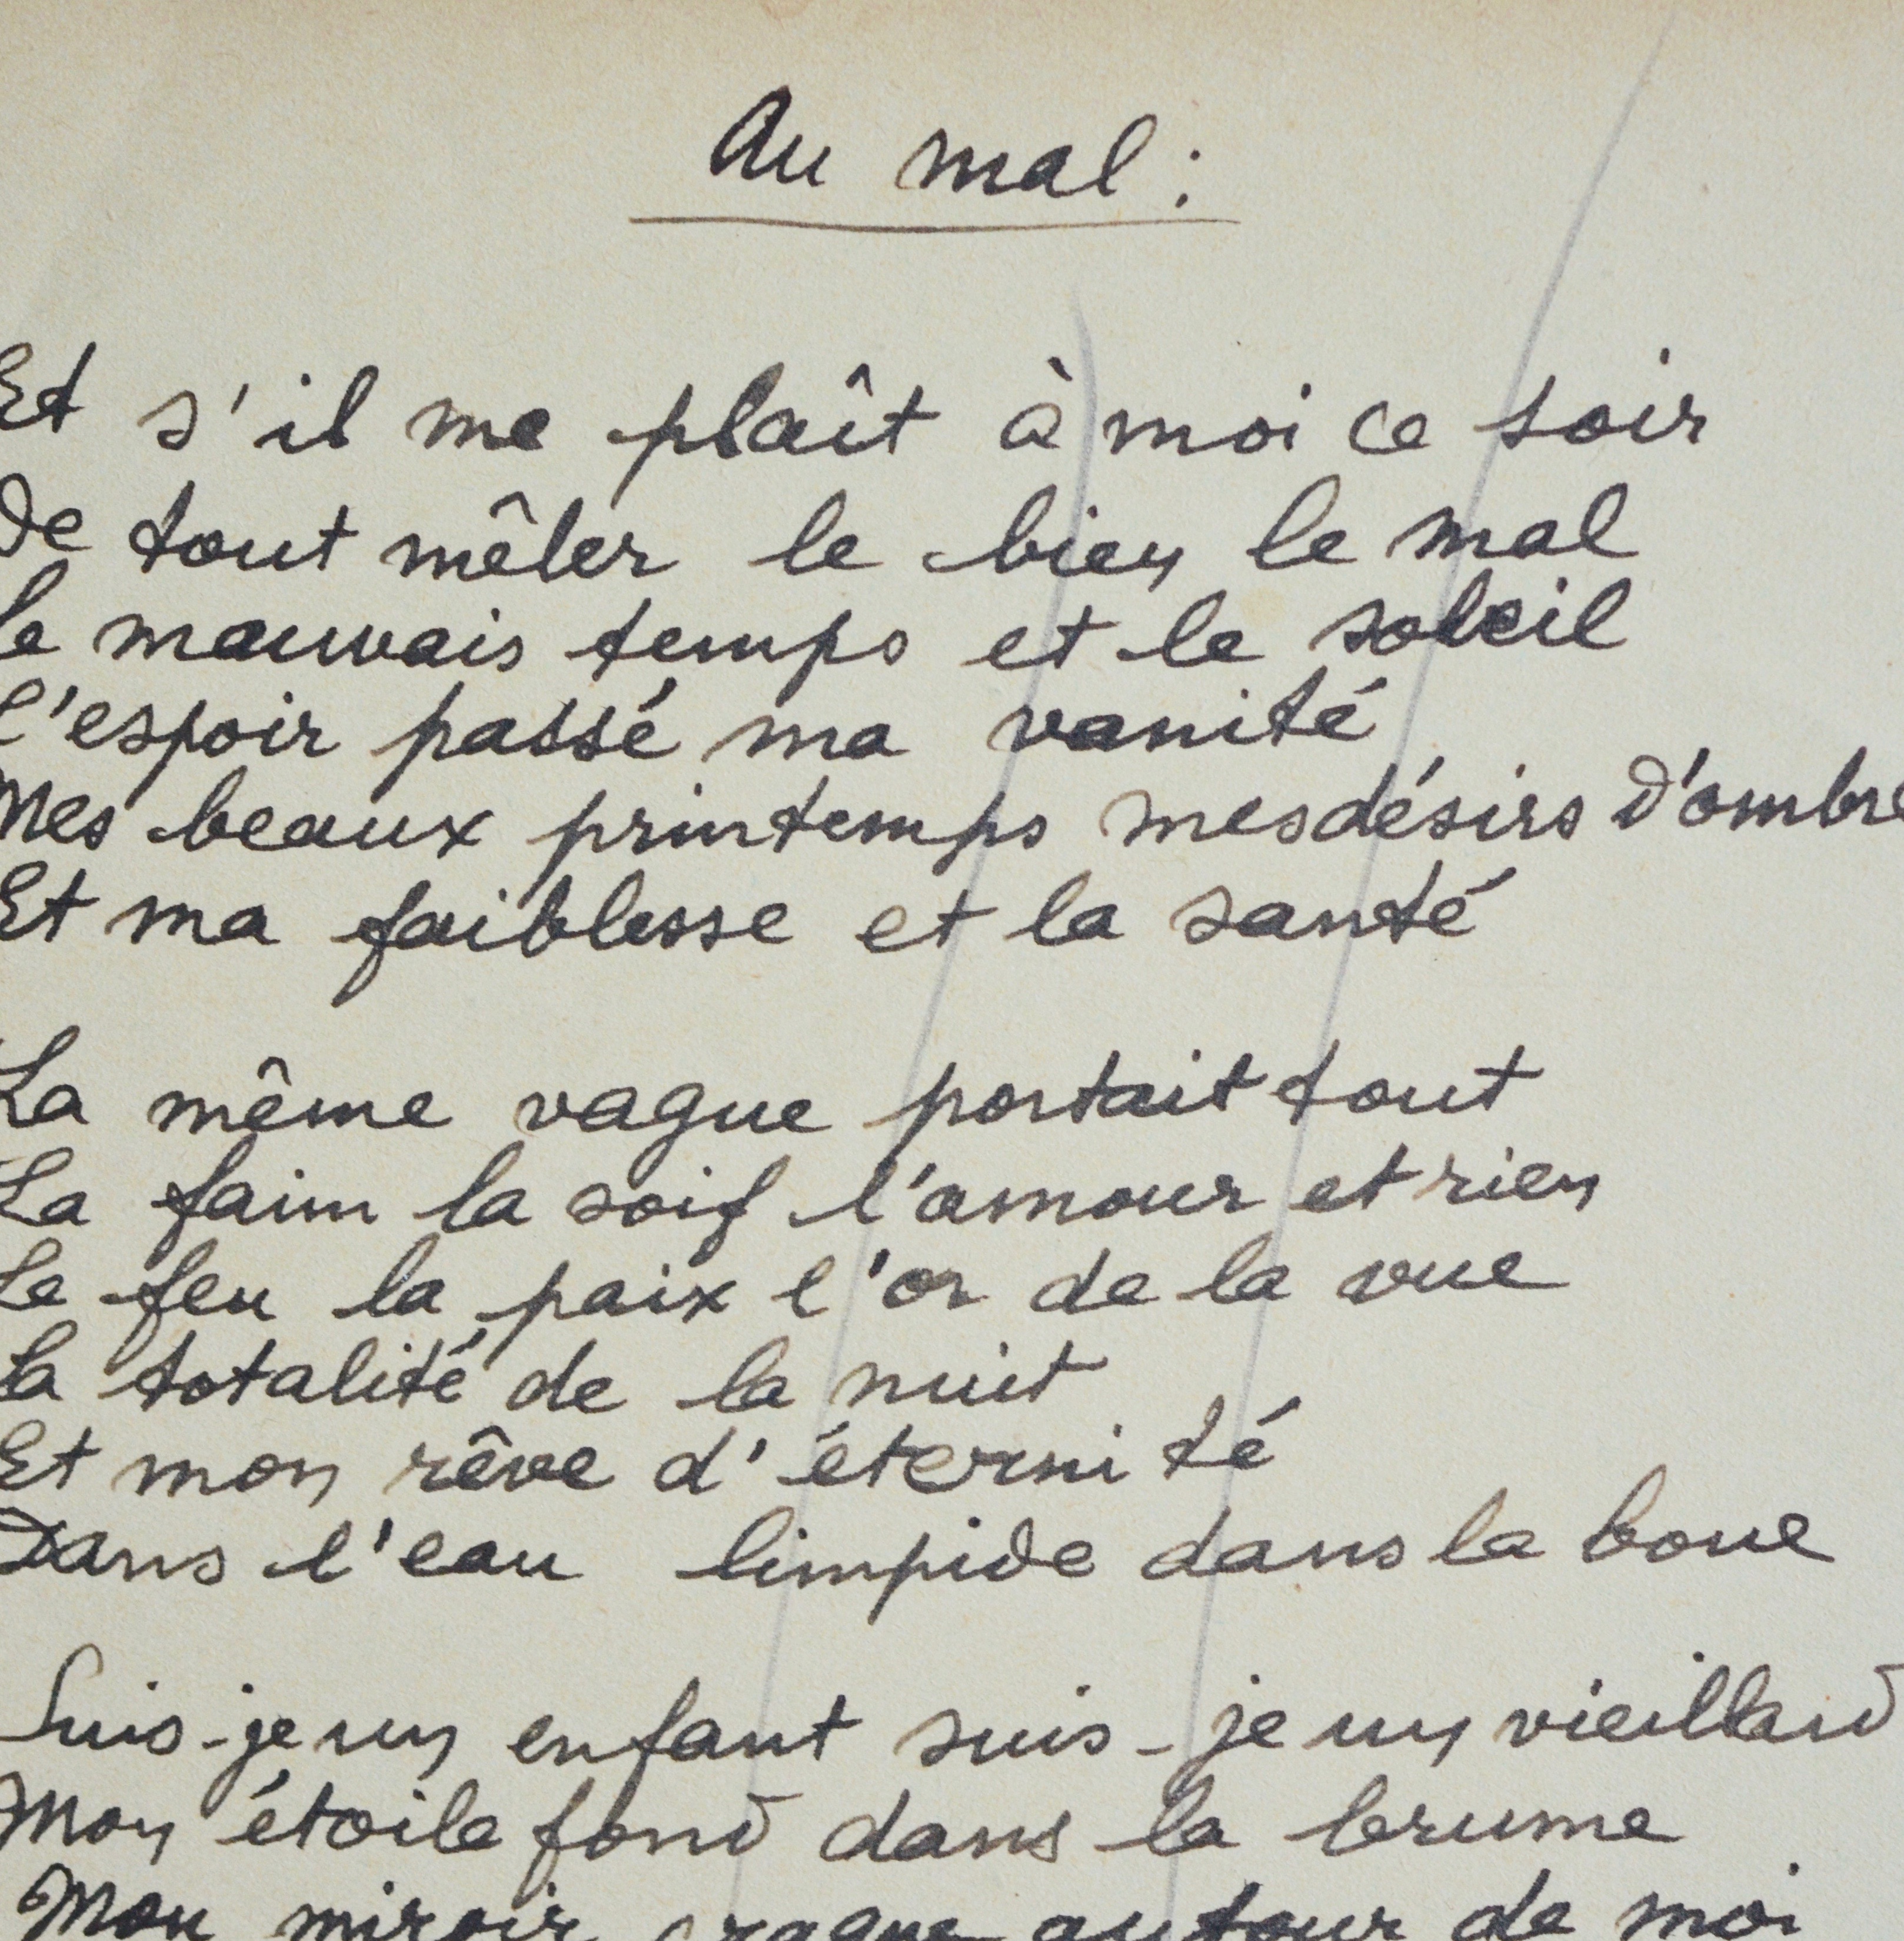 Au mal :
Et s'il me plaît à moi ce soir
De tout mêler le bien le mal
Le mauvais temps et le soleil
L'espoir passé ma vanité
Mes beaux printemps mes désirs d'ombre
Et ma faiblesse et la santé
La même vague portait tout
La faim la soif l'amour et rien
Le feu la paix l'or de la vue
La totalité de la nuit
Et mon rêve d'éternité
Dans l'eau limpide dans la boue
Suis-je un enfant suis-je un vieillard
Mon étoile fond dans la brume
Mon miroir craque autour de moi